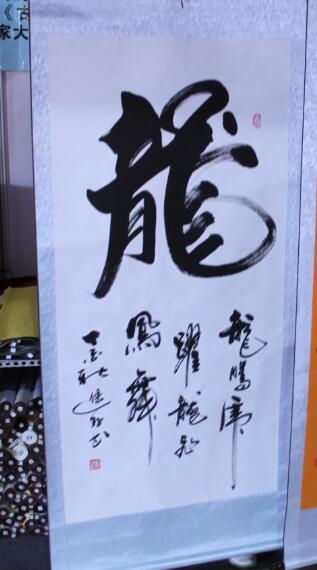 龍
龍騰虎
躍龍飛
鳳舞
《古
家大